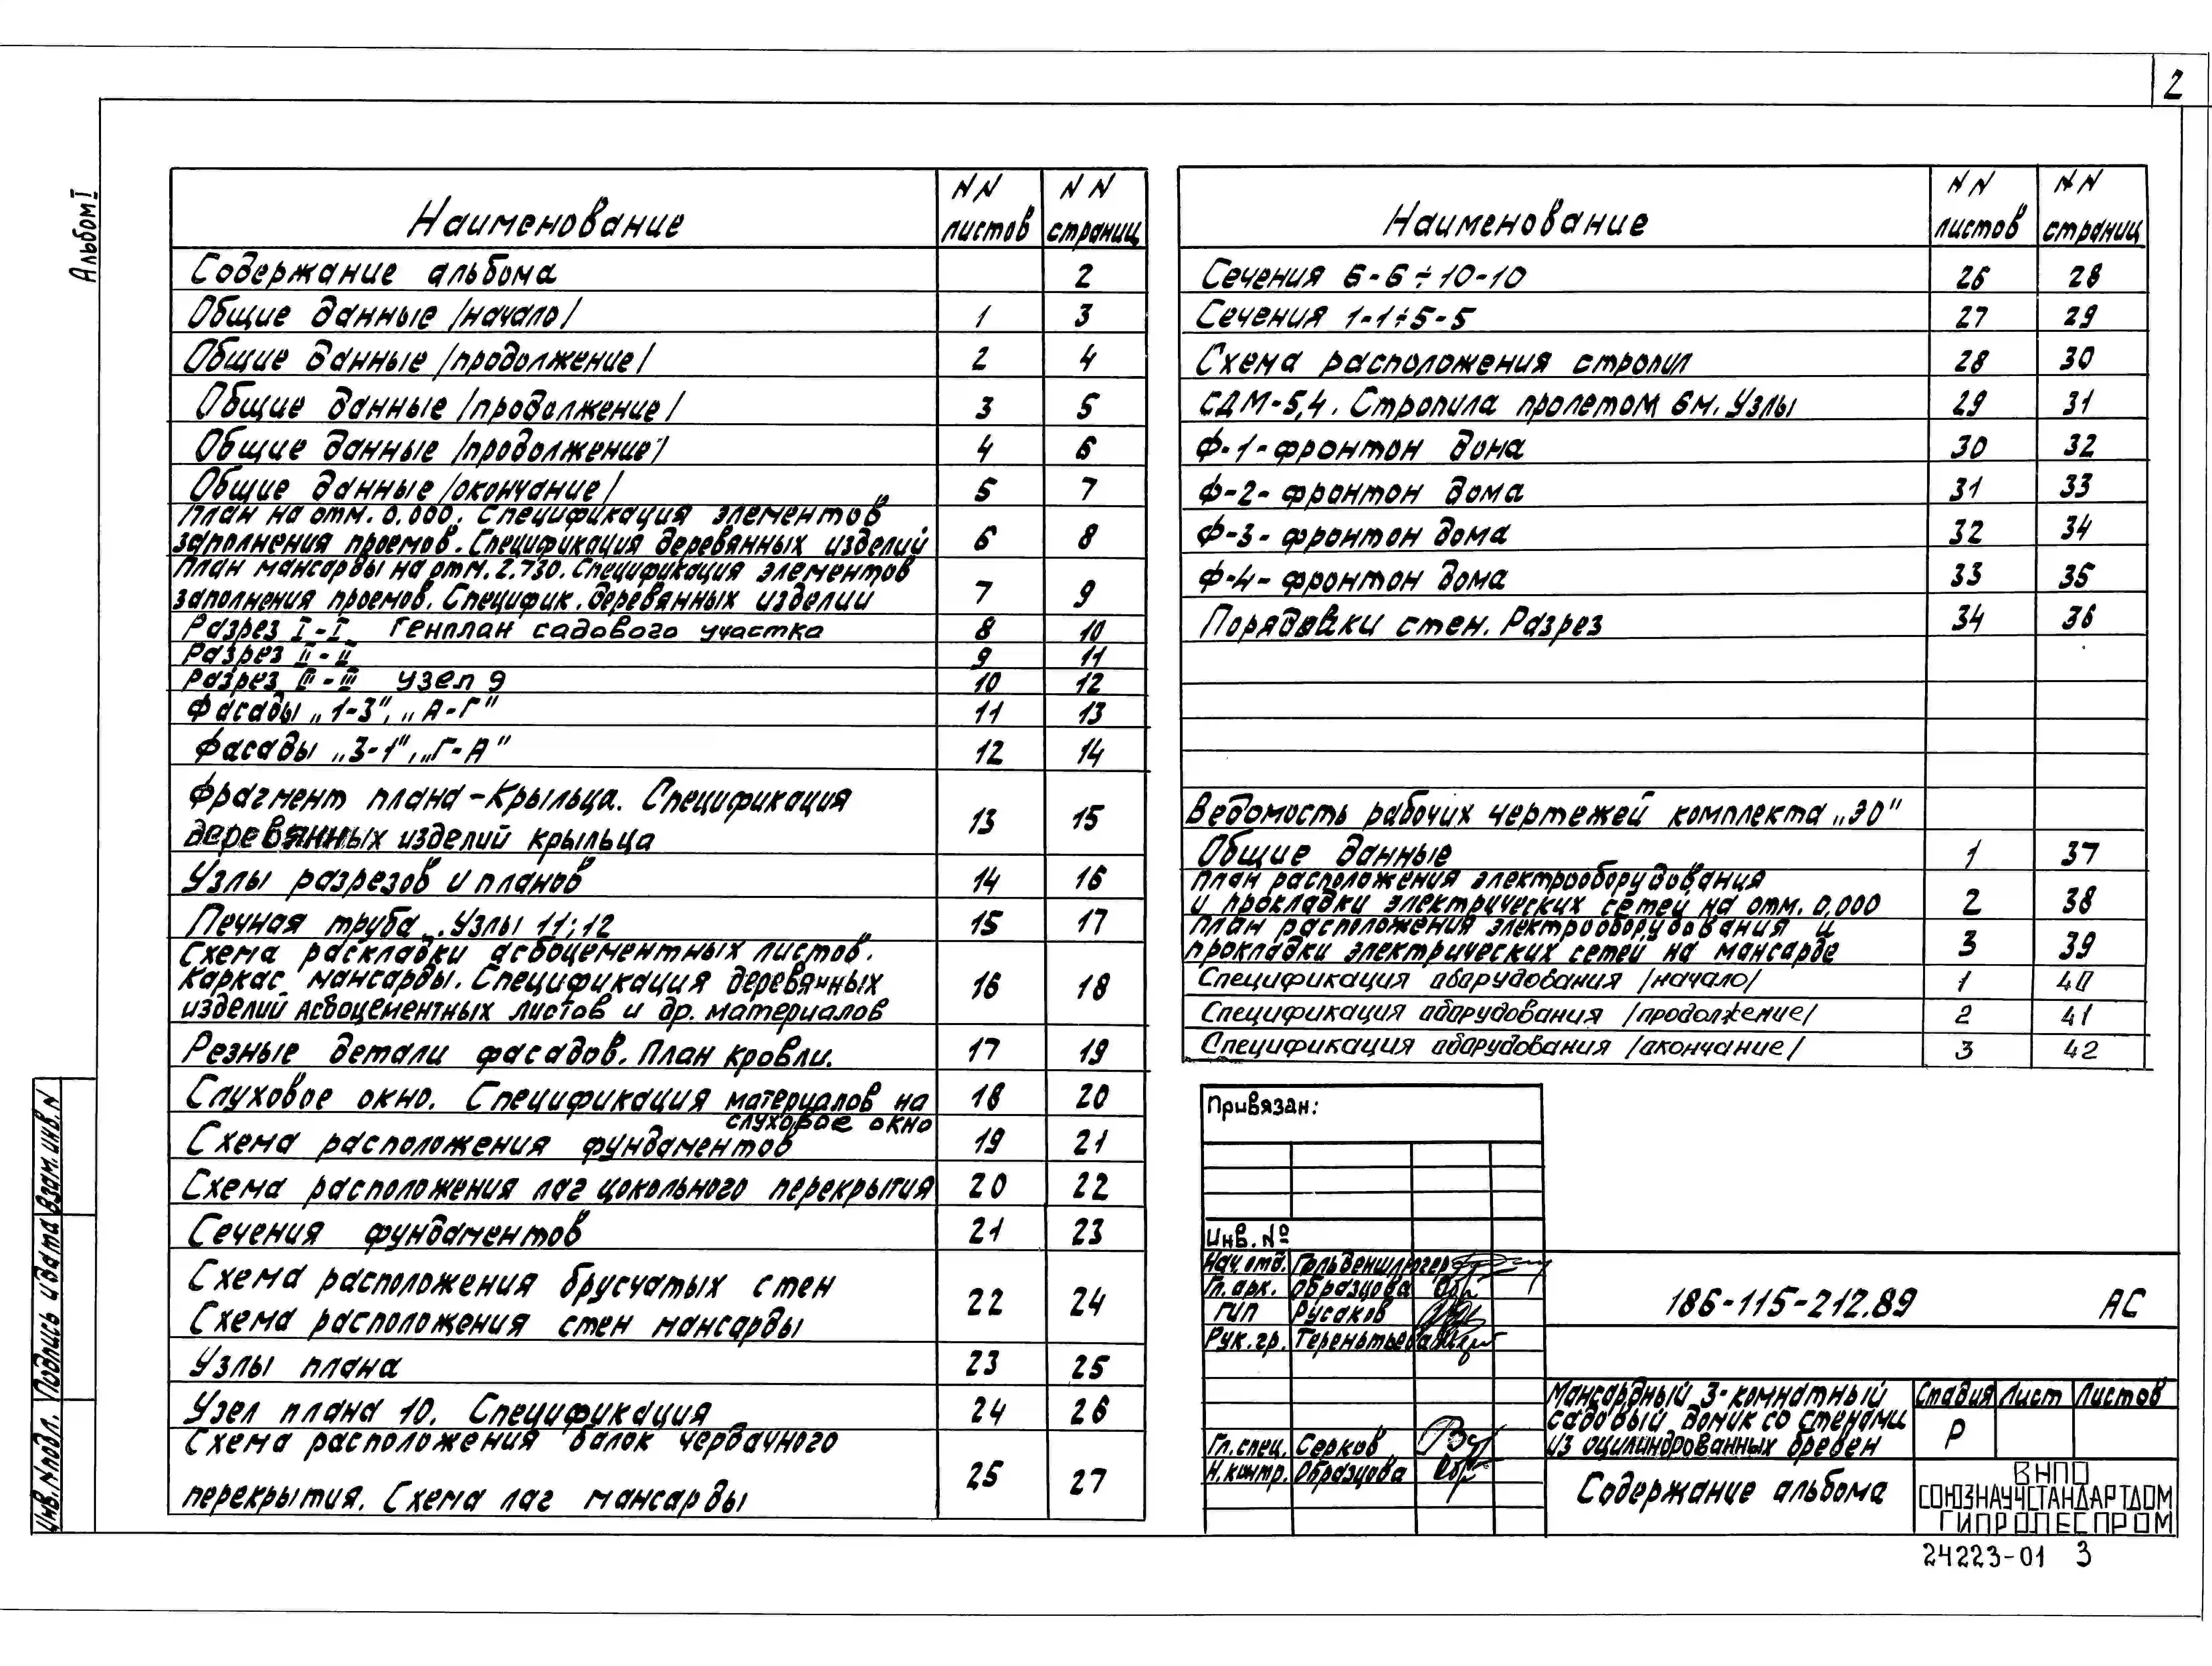 2
Альбом I
Наименование NN листов NN страниц
Содержание альбома 2
Общие данные /начало/ 1 3
Общие данные /продолжение/ 2 4
Общие данные /продолжение/ 3 5
Общие данные /продолжение/ 4 6
Общие данные /окончание/ 5 7
План на отм. 0.000. Спецификация элементов
заполнения проемов. Спецификация деревянных изделий 6 8
План мансарды на отм. 2.730. Спецификация элементов
заполнения проемов. Специфик. деревянных изделий 7 9
Разрез I-I. Генплан садового участка 8 10
Разрез II-II 9 11
Разрез III-III Узел 9 10 12
Фасады „1-3", „А-Г" 11 13
Фасады „3-1", „Г-А" 12 14
Фрагмент плана-Крыльца. Спецификация
деревянных изделий крыльца 13 15
Узлы разрезов и планов 14 16
Печная труба. Узлы 11; 12 15 17
Схема раскладки асбоцементных листов.
Каркас мансарды. Спецификация деревянных
изделий асбоцементных листов и др. материалов 16 18
Резные детали фасадов. План кровли. 17 19
Слуховое окно. Спецификация материалов на
слуховое окно 18 20
Схема расположения фундаментов 19 21
Схема расположения лаг цокольного перекрытия 20 22
Сечения фундаментов 21 23
Схема расположения брусчатых стен
Схема расположения стен мансарды 22 24
Узлы плана 23 25
Узел плана 10. Спецификация 24 26
Схема расположения балок чердачного
перекрытия. Схема лаг мансарды 25 27
Наименование NN листов NN страниц
Сечения 6-6÷10-10 26 28
Сечения 1-1÷5-5 27 29
Схема расположения стропил 28 30
СДМ-5,4. Стропила пролетом 6м. Узлы 29 31
Ф-1-фронтон дома 30 32
Ф-2-фронтон дома 31 33
Ф-3-фронтон дома 32 34
Ф-4-фронтон дома 33 35
Порядовки стен. Разрез 34 36
Ведомость рабочих чертежей комплекта „ЭО"
Общие данные 1 37
План расположения электрооборудования
и прокладки электрических сетей на отм. 0,000 2 38
План расположения электрооборудования и
прокладки электрических сетей на мансарде 3 39
Спецификация оборудования /начало/ 1 40
Спецификация оборудования /продолжение/ 2 41
Спецификация оборудования /окончание/ 3 42
Привязан:
Инв. №
Нач. отд.
Гл. арк. Образцова
ГИП Русаков
Рук. гр. Терентьева
Гл. спец. Серков
Н. контр. Образцова
186-115-212.89 АС
Мансардный 3-комнатный
садовый домик со стенами
из оцилиндрованных бревен
Стадия Лист Листов
Р
Содержание альбома
ВНПО
СОЮЗНАУЧСТАНДАРТДОМ
ГИПРОЛЕСПРОМ
24223-01 3
Взам. инв. N
Подпись и дата
Инв. N подл.